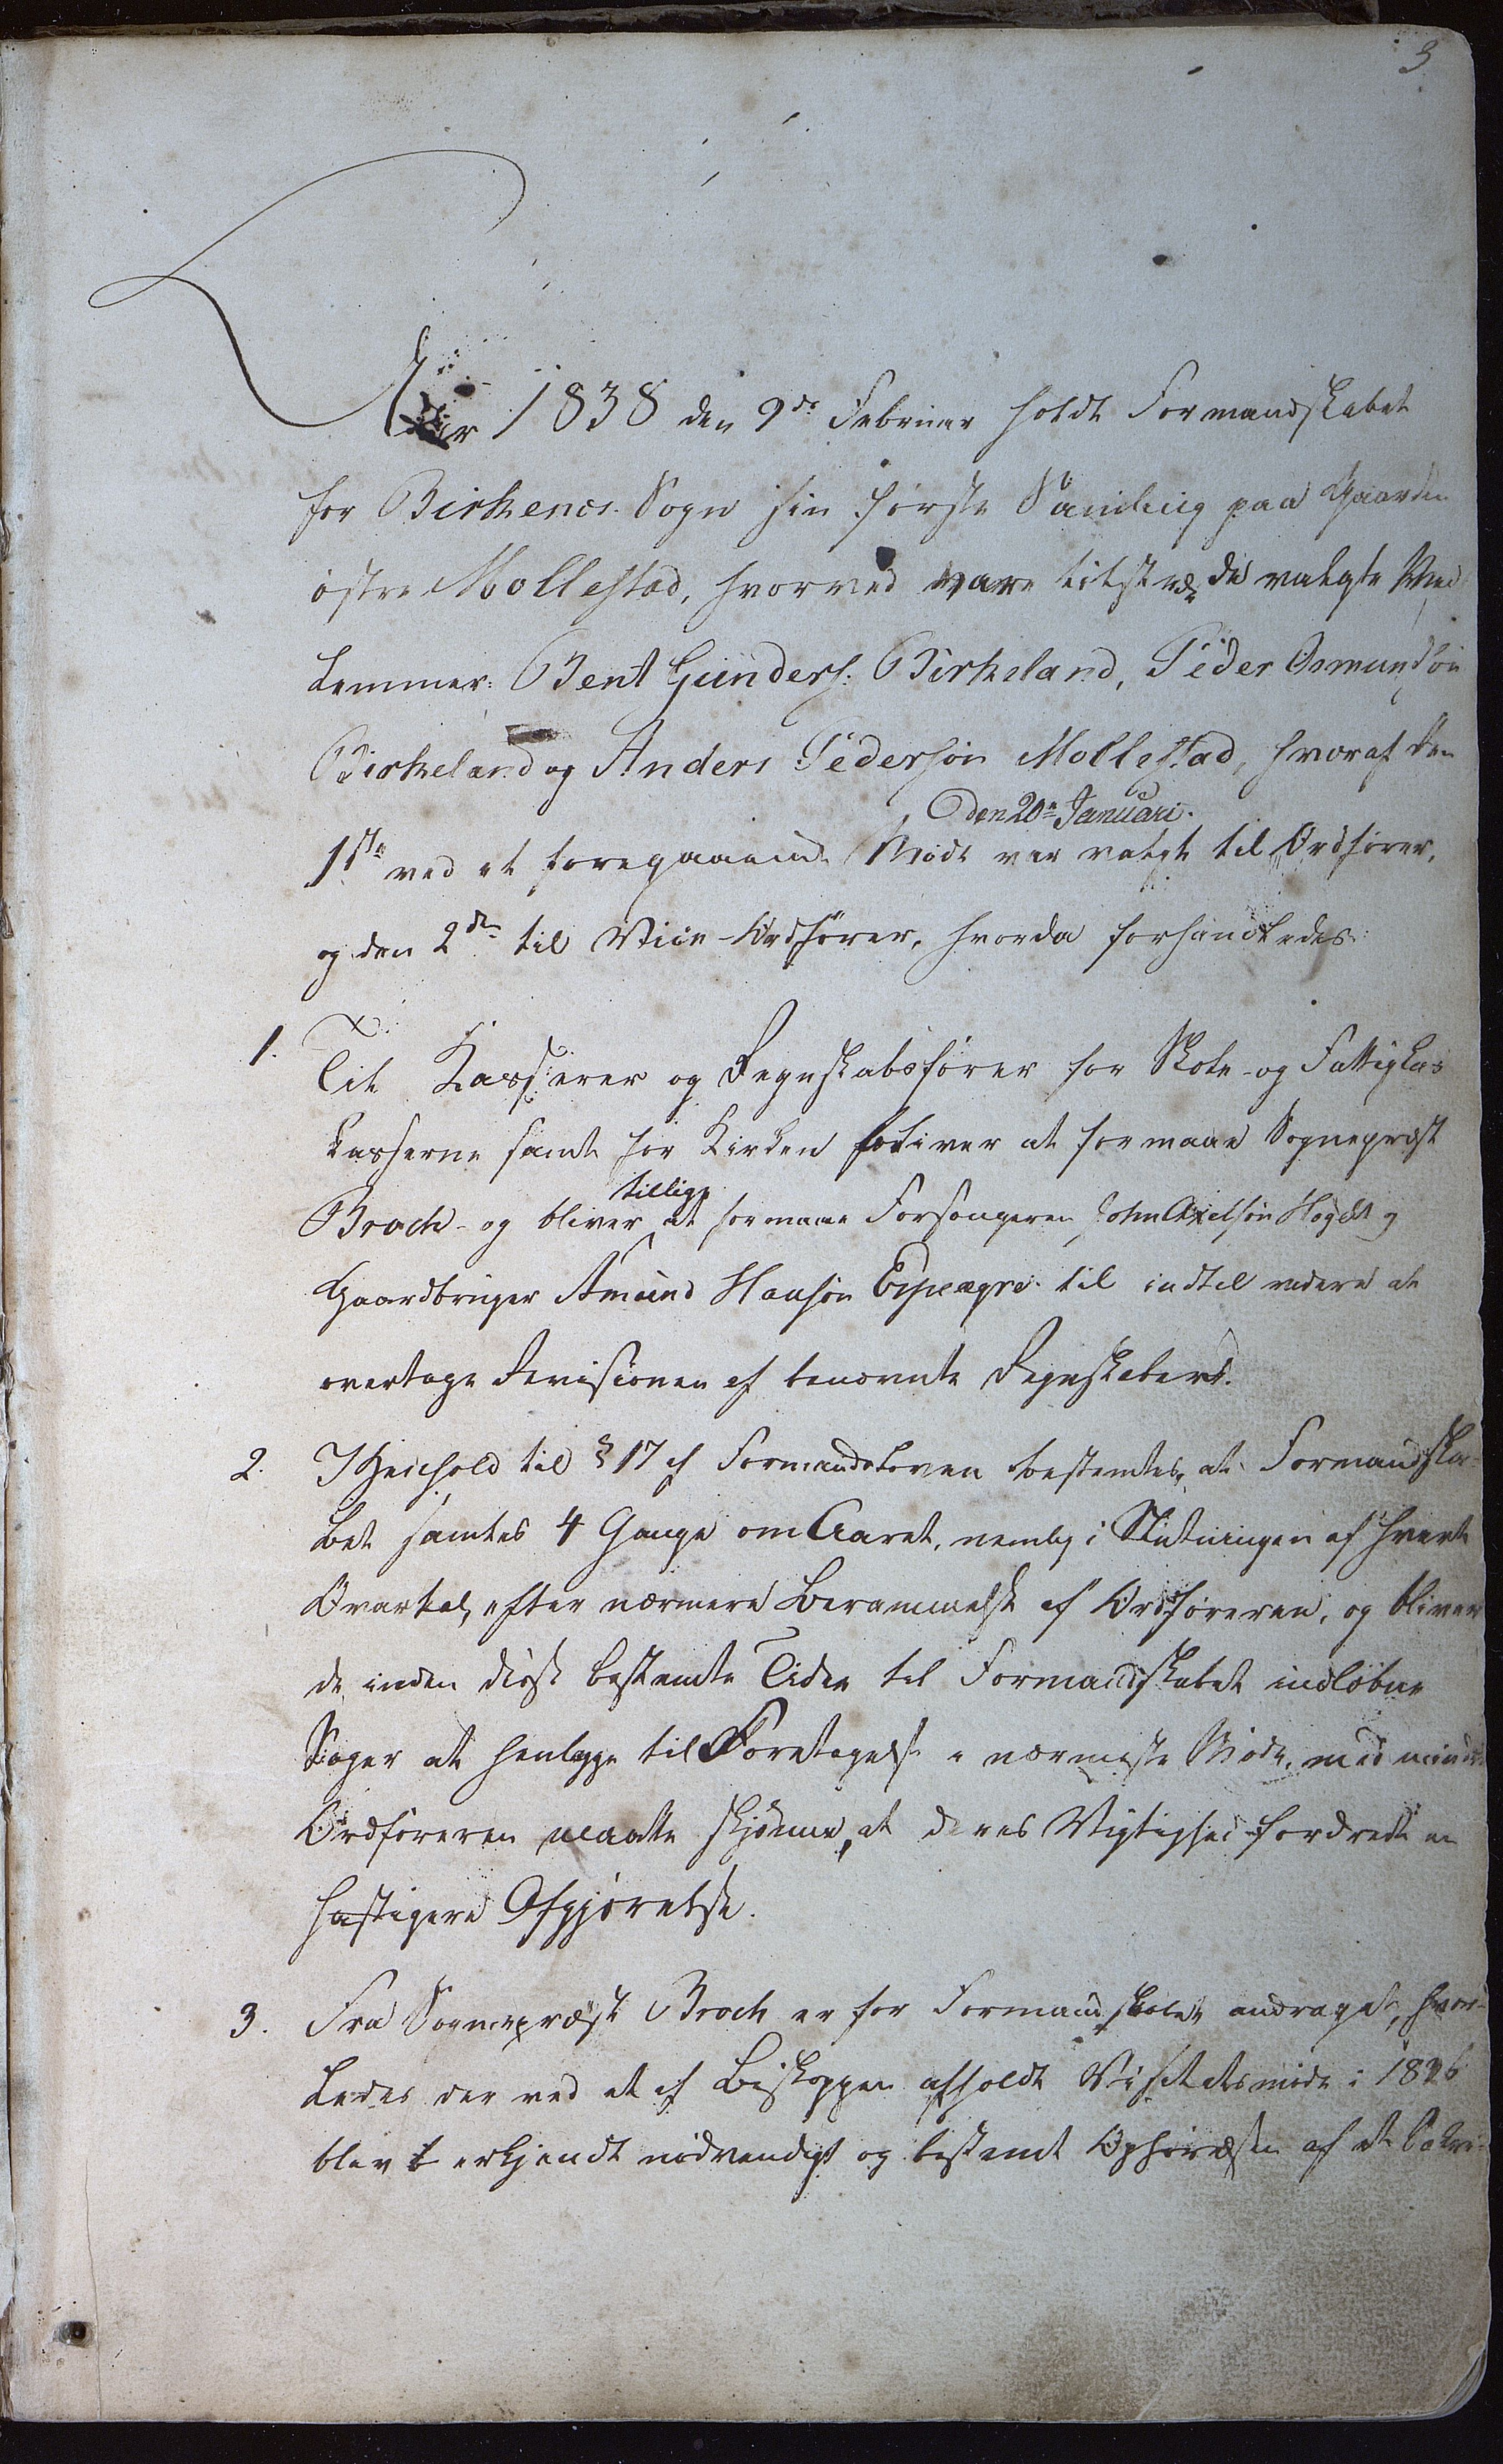 3
Aar 1838 den 9de Februar holdt Formandskabet
for Birkenes Sogn sin første Samling paa Gaarden
østre Mollestad, hvorved vare tilstede de valgte Med
lemmer: Bent Gunders. Birkeland, Peder Osmundsøn
Birkeland og Anders Pedersøn Mollestad, hvoraf den
den 20de Januari
1ste ved et foregaaende Møde var valgt til Ordfører,
og den 2den til Vice-Ordfører, hvorda forhandledes:
1. Til Kasserer og Regnskabsfører for Skole- og Fattig
kasserne samt for Kirken bliver at formaae Sognepræst
tillige
Broch - og bliver at formaae Forsangeren John Axelsøn Høgelt og
Gaardbruger Amund Hansøn Espeagre til indtil videre at
overtage Revisionen af benævnte Regnskaber.
2. I Henhold til § 17 af Formandsloven bestemtes, at Formandska-
bet samles 4 Gange om Aaret, nemlig i Slutningen af hvert
Qvartal, efter nærmere Berammelse af Ordføreren, og bliver
de inden disse bestemte Tider til Formandskabet indløbne
Sager at henlægge til Foretagelse i nærmeste Møde, med mindre
Ordføreren maatte skjønne, at deres Vigtighed fordrede en
hastigere Afgjørelse.
3. Fra Sognepræst Broch er for Formandskabet andraget, hvor-
ledes der ved et af Biskoppen afholdt Visitatsmøde i 1836
blev erkjendt nødvendigt og bestemt Opførelsen af et Sakri-